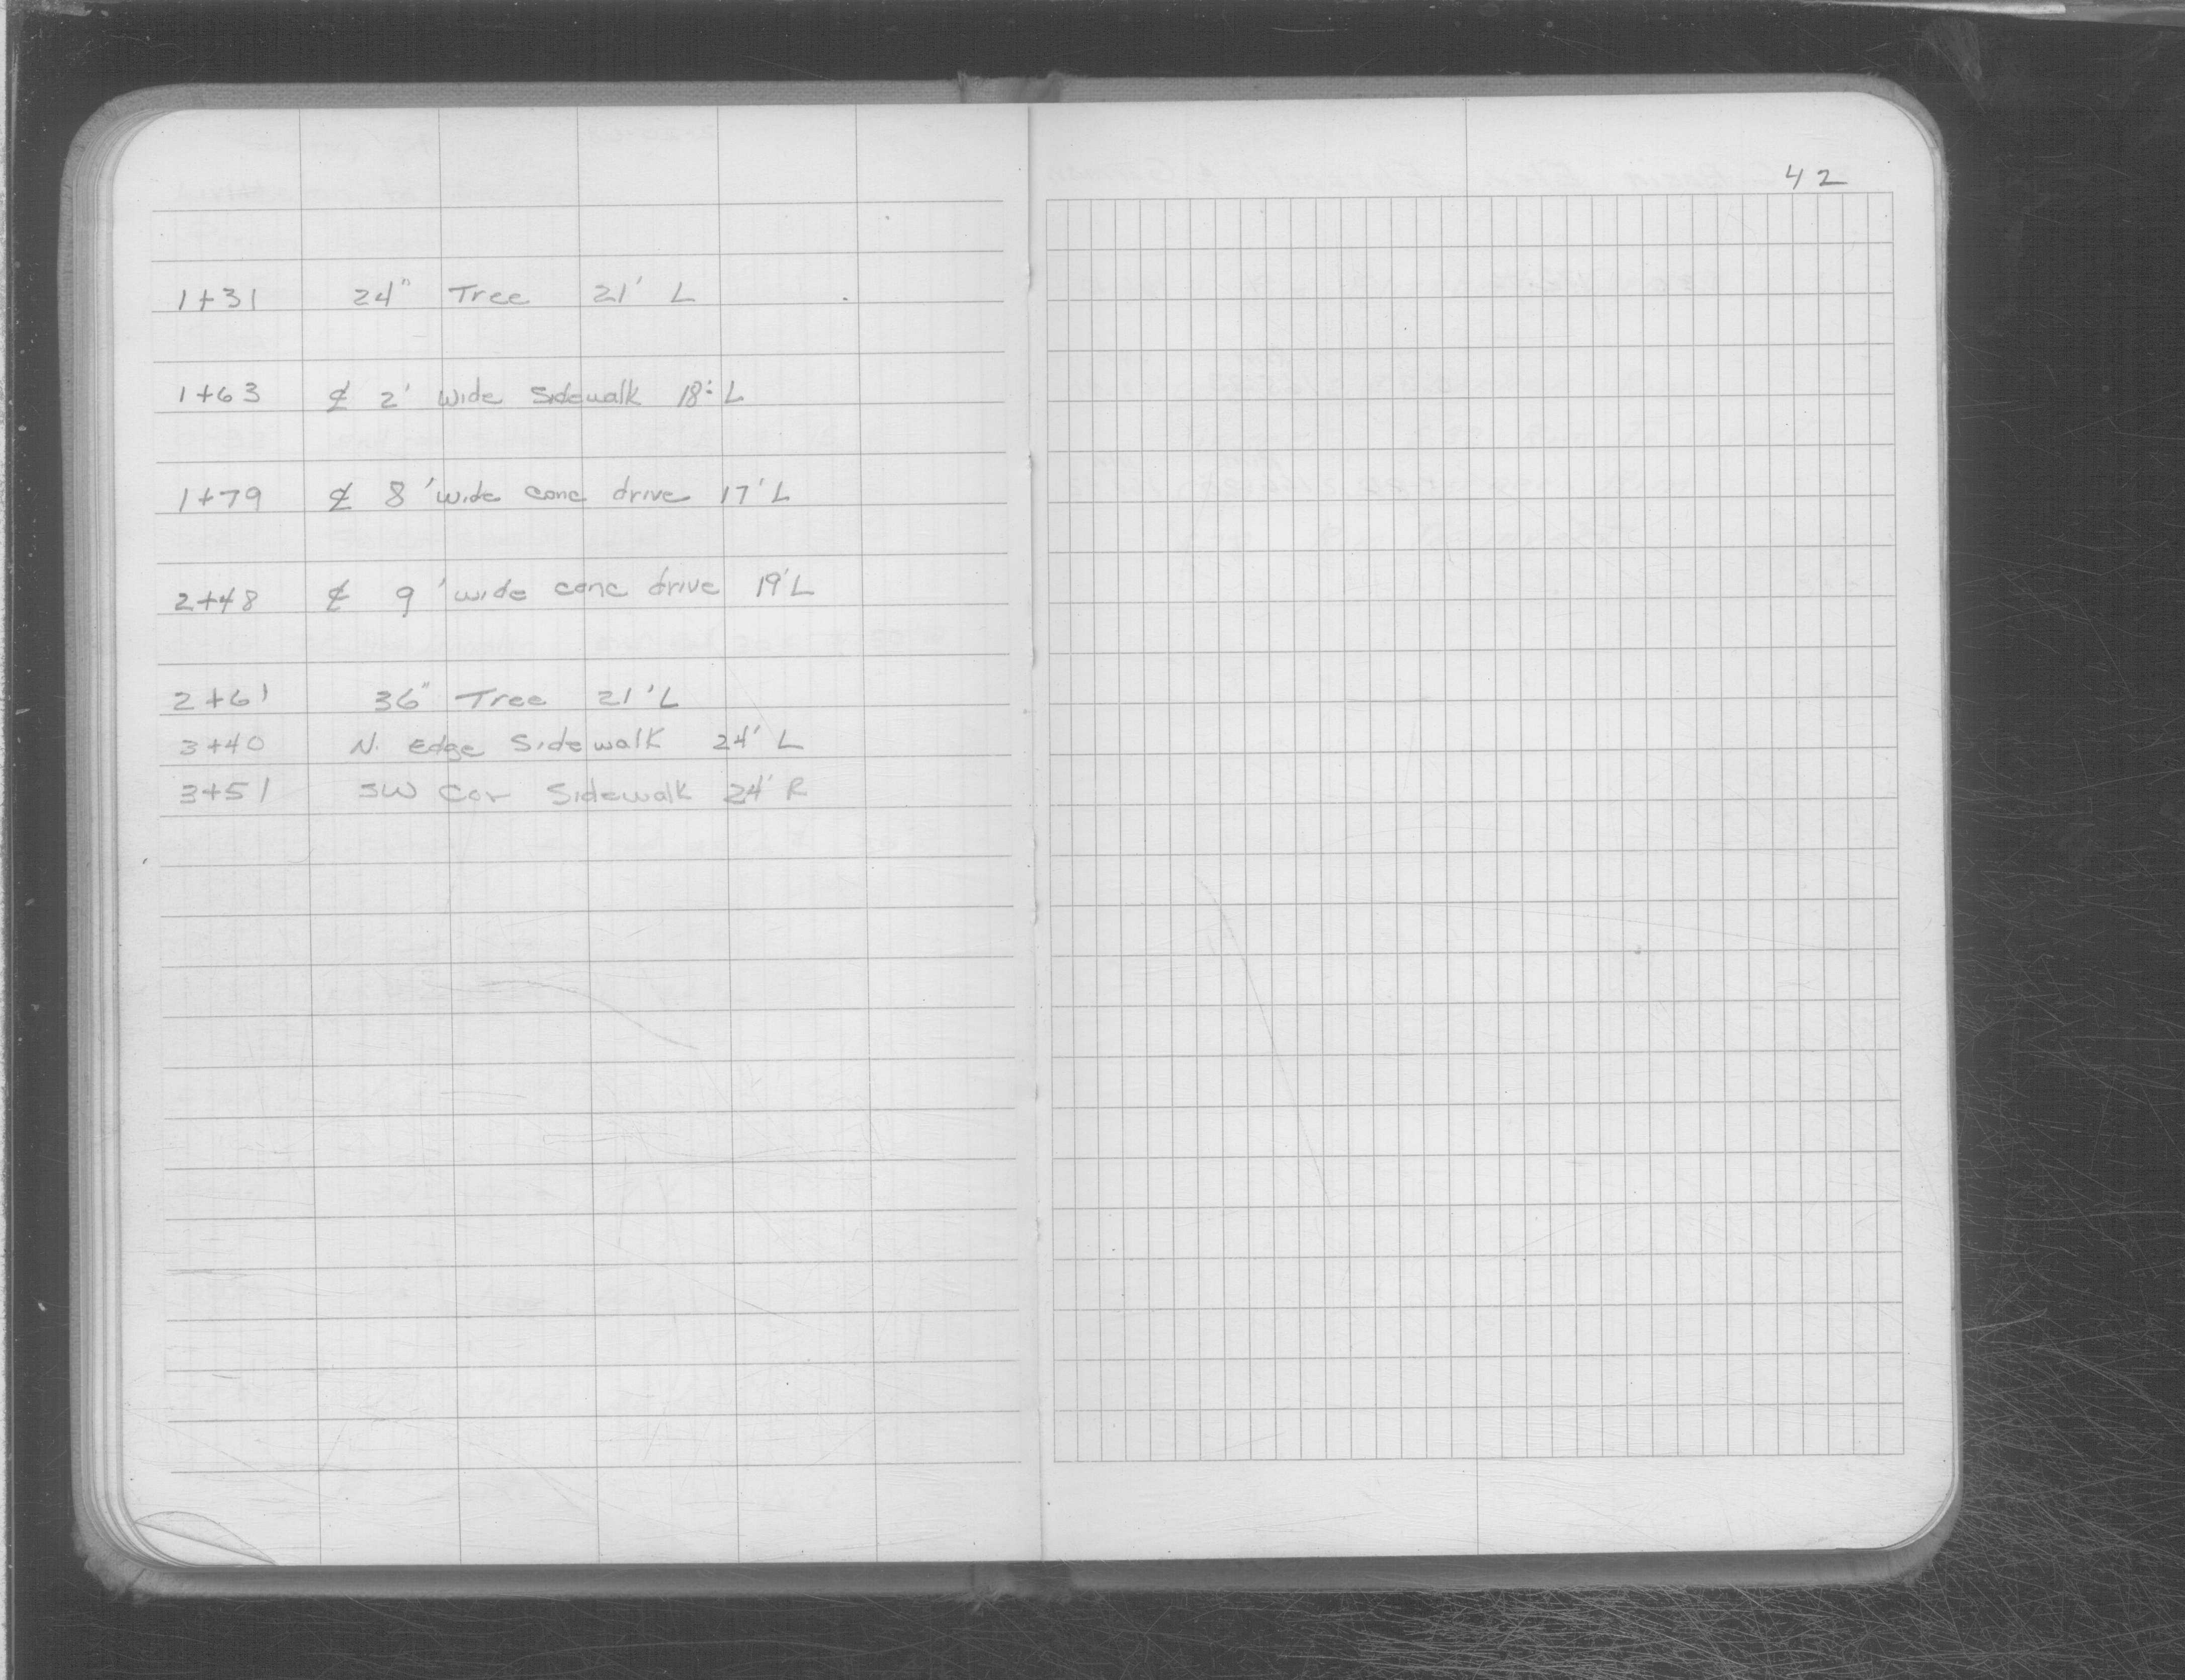 42
1+31 24" Tree 21' L
1+63 ⅊ 2' wide Sidewalk 18' L
1+79 ⅊ 8' wide conc drive 17' L
2+48 ⅊ 9' wide conc drive 19' L
2+61 36" Tree 21' L
3+40 N. Edge Sidewalk 24' L
3+51 SW Cor Sidewalk 24' R